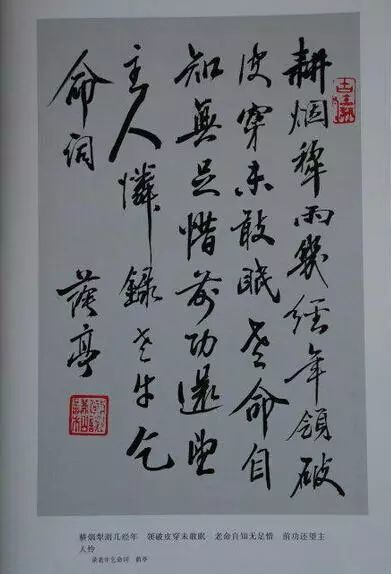 耕烟犂雨幾經年領破
皮穿未敢眠老命自
知無足惜前功還望
主人憐錄老牛乞
命詞 蔭亭
耕烟犁雨几经年 领破皮穿未敢眠 老命自知无足惜 前功还望主
人怜
录老牛乞命词 荫亭